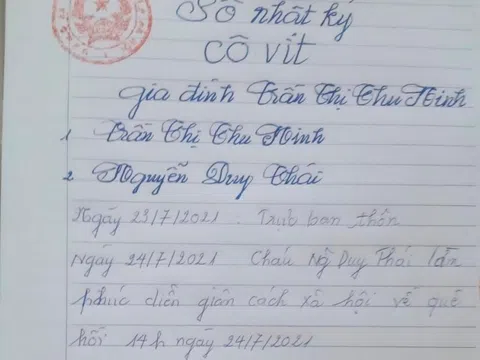 Sổ nhật ký
CÔ VIT
Gia đình Trần Thị Thu Minh
1 Trần Thị Thu Minh
2 Nguyễn Duy Thái
Ngày 23/7/2021 : Trực ban thôn
Ngày 24/7/2021 Cháu Ng̃ Duy Thái lần
phúc diễn giãn cách xã hội về quê
hồi 14h ngày 24/7/2021